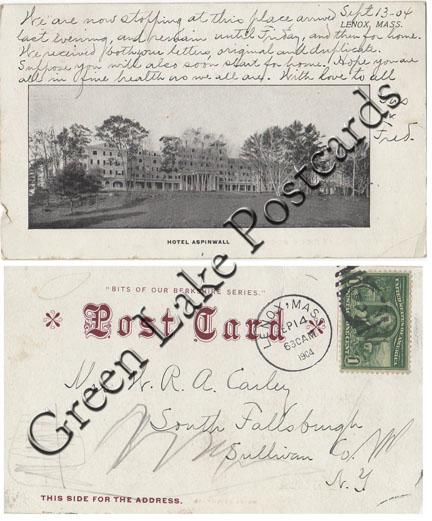 Sept. 13-04
LENOX, MASS.
We are now stopping at this place arrived
last evening, and remain until Friday, and then for home.
We received both your letters, original and duplicate.
Suppose you will also soon start for home. Hope you are
all in fine health as we all are. With love to all
Fred.
HOTEL ASPINWALL
"BITS OF OUR BERKSHIRE SERIES."
Post Card
LENOX, MASS.
SEP 14
630AM
1904
1
W. R. A. Carley
South Fallsburgh
Sullivan Co.
N.Y
THIS SIDE FOR THE ADDRESS.
Green Lake Postcards